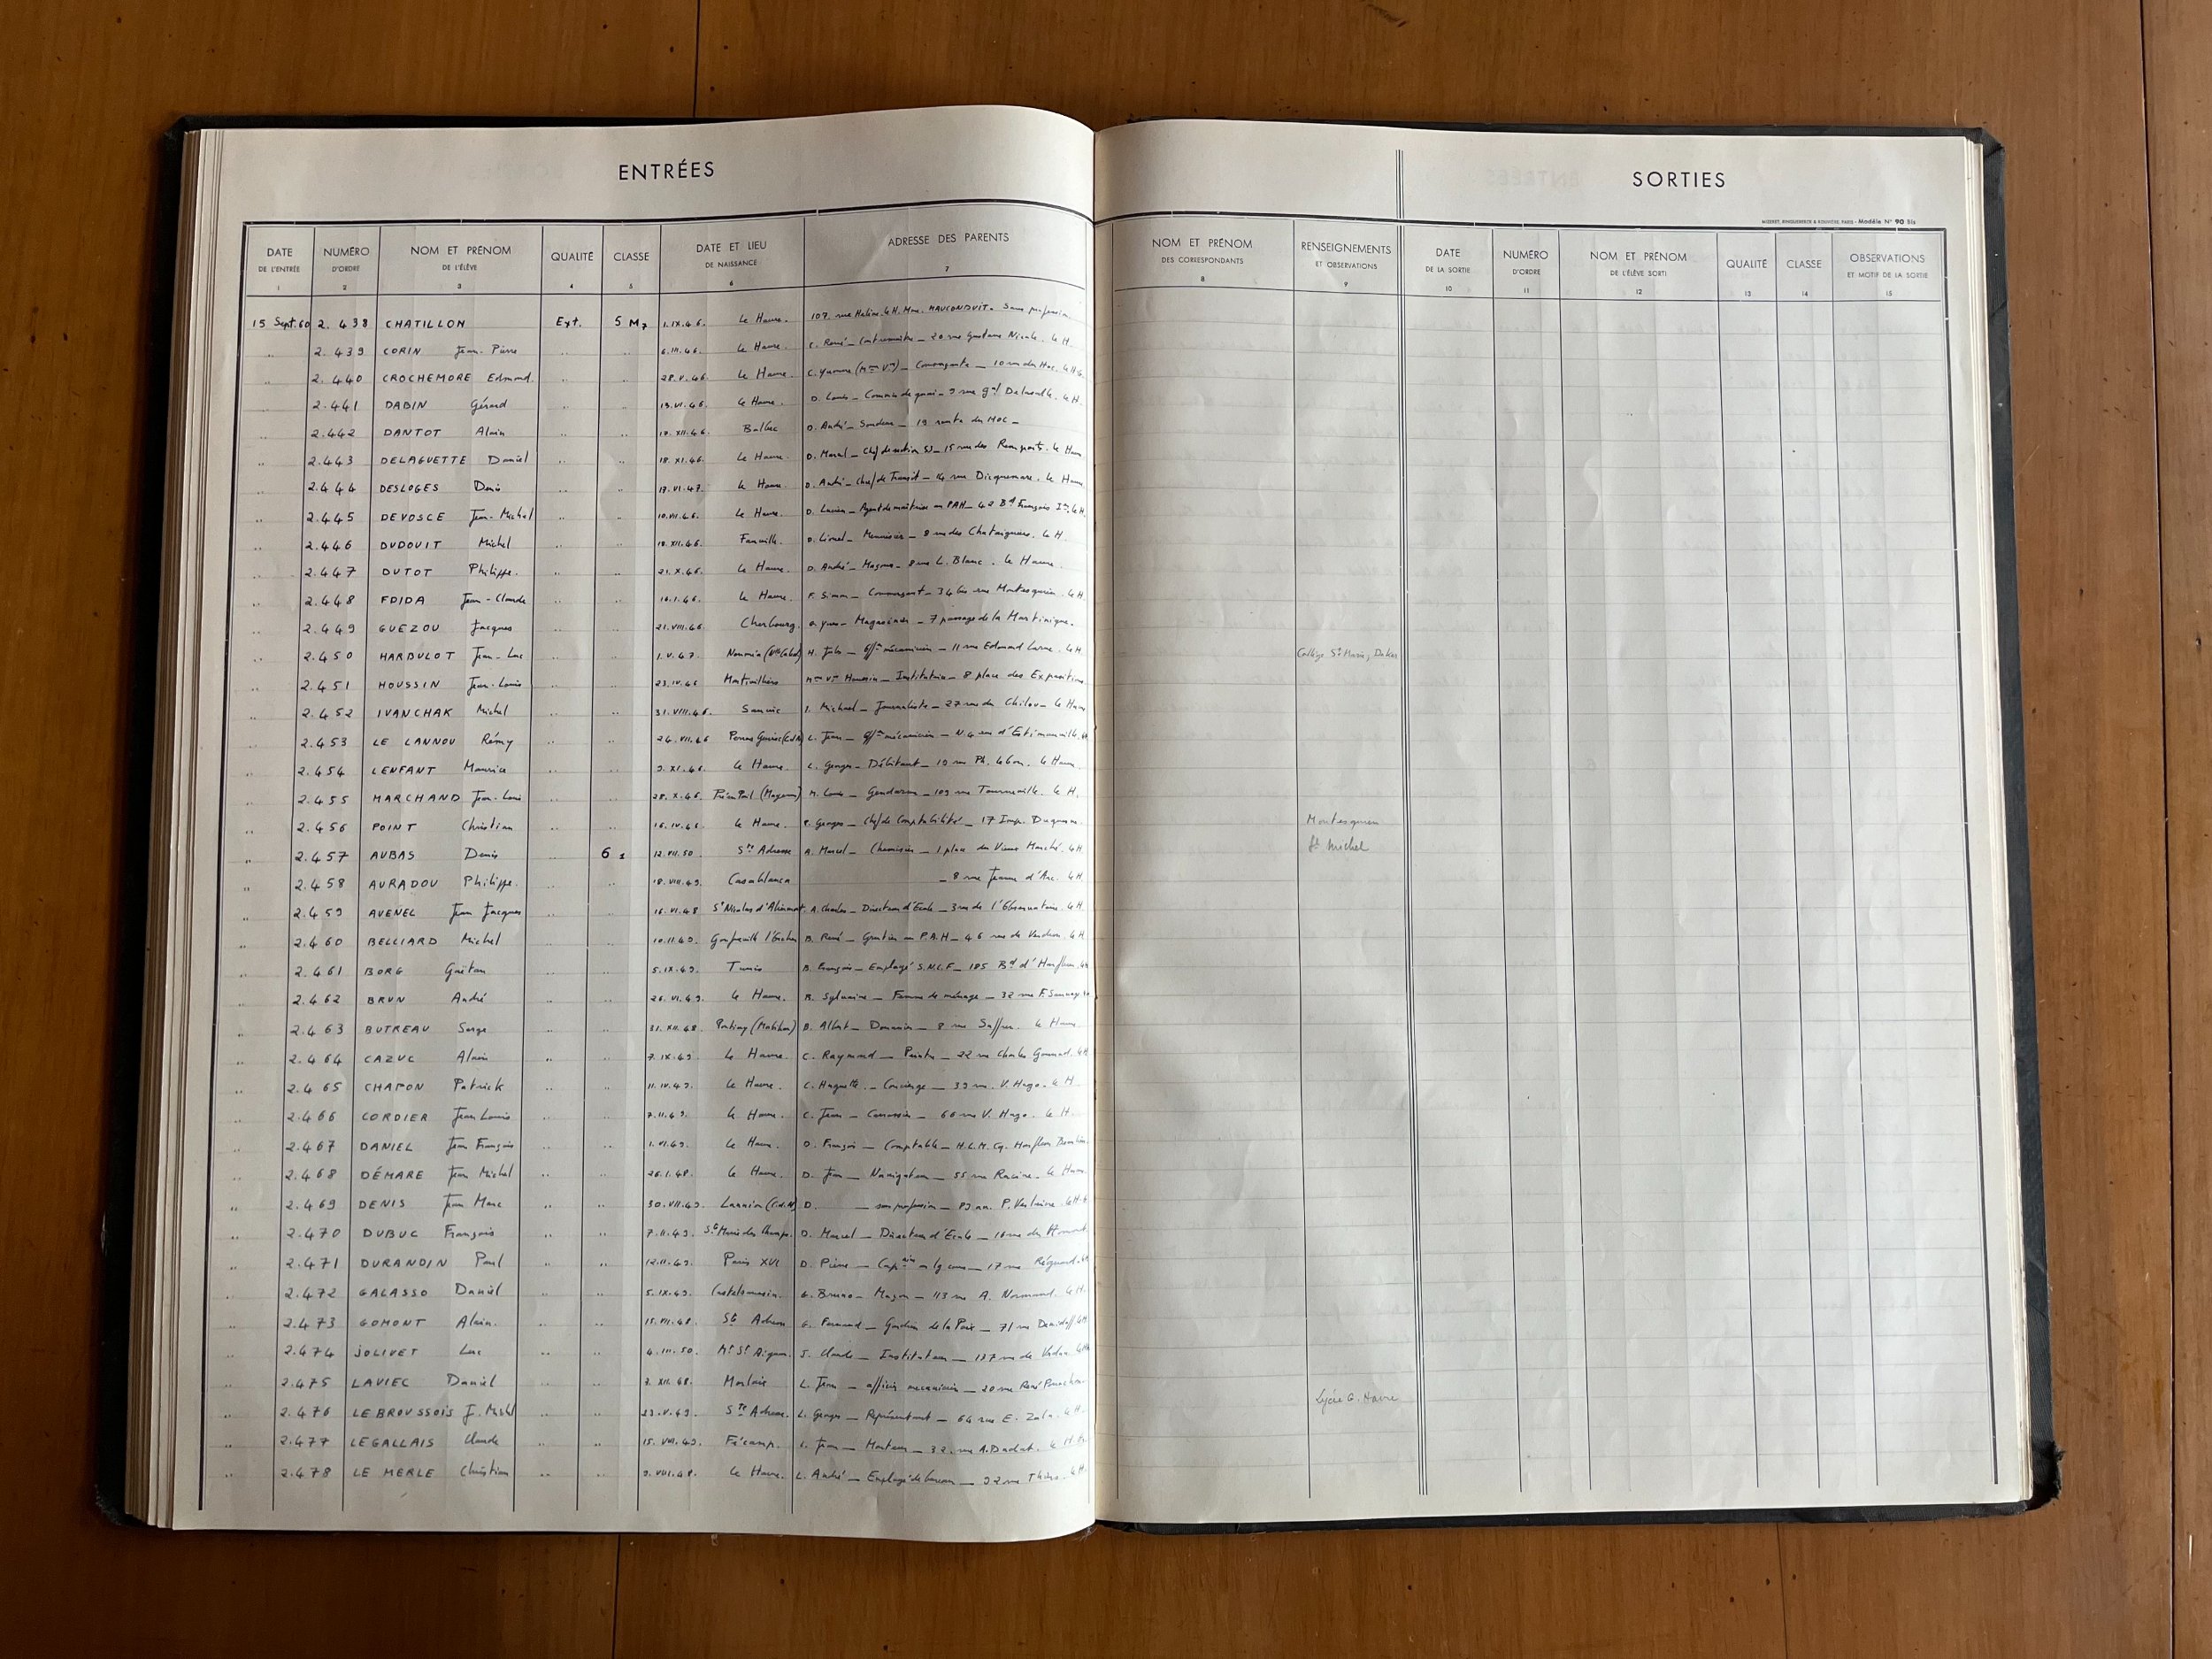 ENTRÉES
DATE DE L'ENTRÉE 1 NUMÉRO D'ORDRE 2 NOM ET PRÉNOM DE L'ÉLÈVE 3 QUALITÉ 4 CLASSE 5 DATE ET LIEU DE NAISSANCE 6 ADRESSE DES PARENTS 7
15 Sept. 60 2.438 CHATILLON Ext. 5 M7 1.IX.46. Le Havre. 107 rue Hélène. le H. Mme. MAUCONDUIT. Sans profession.
" 2.439 CORIN Jean-Pierre " " 6.III.46. Le Havre. C. René - Contremaître - 20 rue Gustave Nicole. le H.
" 2.440 CROCHEMORE Edmond. " " 28.V.46. Le Havre. C. Yvonne (Mme Vve) - Commerçante - 10 rue du Hoc. le H.
" 2.441 DABIN Gérard " " 13.VI.46. Le Havre. D. Louis - Commis de quai - 9 rue Gal
" 2.442 DANTOT Alain " " 17.XII.46. Bolbec D. André - Soudeur - 19 route du HOC -
" 2.443 DELAGUETTE Daniel " " 18.XI.46. Le Havre D. Marcel - Chef de section - 15 rue des Remparts. le Havre
" 2.444 DESLOGES Denis " " 17.VI.47. Le Havre D. André - Chef de Transit - 14 rue Dicquemare. le Havre.
" 2.445 DEVOSCE Jean-Michel " " 10.VII.46. Le Havre. D. Lucien - Agent de maîtrise au PAH - 42 Bd François Ier. le H.
" 2.446 DUDOUIT Michel " " 18.XII.46. Fauville. D. Lionel - Menuisier - 8 rue des Chataigniers. le H.
" 2.447 DUTOT Philippe. " " 21.X.46. Le Havre. D. André - Maçon - 8 rue L. Blanc. le Havre.
" 2.448 FDIDA Jean-Claude " " 16.1.46. Le Havre. F. Simon - Commerçant - 34 bis rue Montesquieu. le H.
" 2.449 GUEZOU Jacques " " 21.VIII.46. Cherbourg. G. Yves - Magasinier - 7 passage de la Martinique.
" 2.450 HARBULOT Jean-Luc " " 1.V.47. Nouméa H. Jules - Offer mécanicien - 11 rue Edouard Larue. le H.
" 2.451 HOUSSIN Jean-Louis " " 23.IV.46 Montivilliers Mme Vve Houssin - Institutrice - 8 place des Expositions
" 2.452 IVANCHAK Michel " " 31.VIII.46. Sanvic I. Michael - Journaliste - 27 rue du Chilou - le Havre
" 2.453 LE LANNOU Rémy " " 24.VII.46 Perros Guirec (C.d.N) L. Jean - Offer mécanicien - N.4 rue d'Estimauville.
" 2.454 LENFANT Maurice " " 9.XI.46. Le Havre. L. Georges - Débitant - 19 rue Ph. Lebon. le Havre.
" 2.455 MARCHAND Jean-Louis " " 28.X.46. Pré en Pail (Mayenne) M. Louis - Gendarme - 109 rue Tourneville. le H.
" 2.456 POINT Christian " " 16.IV.46 Le Havre. P. Georges - Chef de Comptabilité - 17 Imp. Duquesne.
" 2.457 AUBAS Denis " 6 1 12.VII.50 Ste Adresse A. Marcel - Chemisier - 1 place du Vieux Marché. le H.
" 2.458 AURADOU Philippe. " " 18.VIII.49. Casablanca - 8 rue Jeanne d'Arc. le H.
" 2.459 AVENEL Jean Jacques " " 16.VI.48 St Nicolas d'Aliermont. A. Charles - Directeur d'Ecole - 3 rue de l'Observatoire. le H.
" 2.460 BELLIARD Michel " " 10.11.49. Gonfreville l'Orcher B. René - au P.A.H - 46 rue de Verdun. le H.
" 2.461 BORG Gaëtan " " 5.IX.49. Tunis B. François - Employé S.N.C.F - 185 Bd d'Harfleur.
" 2.462 BRUN André " " 26.VI.49. Le Havre. B. Sylvaine - Femme de ménage - 32 rue F. Sauvage
" 2.463 BUTREAU Serge " " 31.XII.48. Pontivy (Morbihan) B. Albert - Douanier - 8 rue Suffren. le Havre.
" 2.464 CAZUC Alain " " 7.IX.49. Le Havre C. Raymond - Peintre - 22 rue Charles Gounod. le H
" 2.465 CHAPON Patrick " " 11.IV.49. Le Havre. C. Huguette. - Concierge - 39 rue. V. Hugo. le H.
" 2.466 CORDIER Jean Louis " " 7.11.49. Le Havre. C. Jean - Carrossier - 66 rue V. Hugo. le H.
" 2.467 DANIEL Jean François " " 1.VI.49. Le Havre D. François - Comptable - H.L.M.
" 2.468 DÉMARE Jean Michel " " 26.1.48. Le Havre. D. Jean - Navigateur - 55 rue Racine. le Havre
" 2.469 DENIS Jean Marc " " 30.VII.49. Lannion (C.d.N) D. - sans profession - 89 rue. P. Verlaine. le H.
" 2.470 DUBUC François " " 7.11.49. Ste Marie des Champs. D. Marcel - Directeur d'Ecole - 16 rue
" 2.471 DURANDIN Paul " " 12.11.49. Paris XVI D. Pierre - Capaine au lg cours - 17 rue Régnard.
" 2.472 GALASSO Daniel " " 5.IX.49. Castelsarrasin. G. Bruno - Maçon - 113 rue A. Normand. le H.
" 2.473 GOMONT Alain. " " 15.VII.48. Ste Adresse G. Fernand - Gardien de la Paix - 71 rue Demidoff.
" 2.474 JOLIVET Luc " " 4.III.50. Mt St Aignan. J. Claude - Instituteur - 137 rue de Verdun.
" 2.475 LAVIEC Daniel " " 7.XII.48. Morlaix L. Jean - officier mécanicien - 20 rue René
" 2.476 LEBROUSSOIS J. Michel " " 23.V.49. Ste Adresse. L. Georges - Représentant - 64 rue E. Zola. le H.
" 2.477 LEGALLAIS Claude " " 15.VIII.49. Fécamp. L. Jean - Monteur - 32. rue A. le H.
" 2.478 LE MERLE Christian " " 9.VIII.48. Le Havre. L. André - Employé de bureau - 92 rue Thiers. le H.
SORTIES
MIZERET, RINGUEBERCK & RENNESSE, PARIS - Modèle N° 90 Bis
NOM ET PRÉNOM DES CORRESPONDANTS 8 RENSEIGNEMENTS ET OBSERVATIONS 9 DATE DE LA SORTIE 10 NUMÉRO D'ORDRE 11 NOM ET PRÉNOM DE L'ÉLÈVE SORTI 12 QUALITÉ 13 CLASSE 14 OBSERVATIONS ET MOTIF DE LA SORTIE 15
Collège Ste Marie, Dakar
Montesquieu
St Michel
Lycée G. Havre